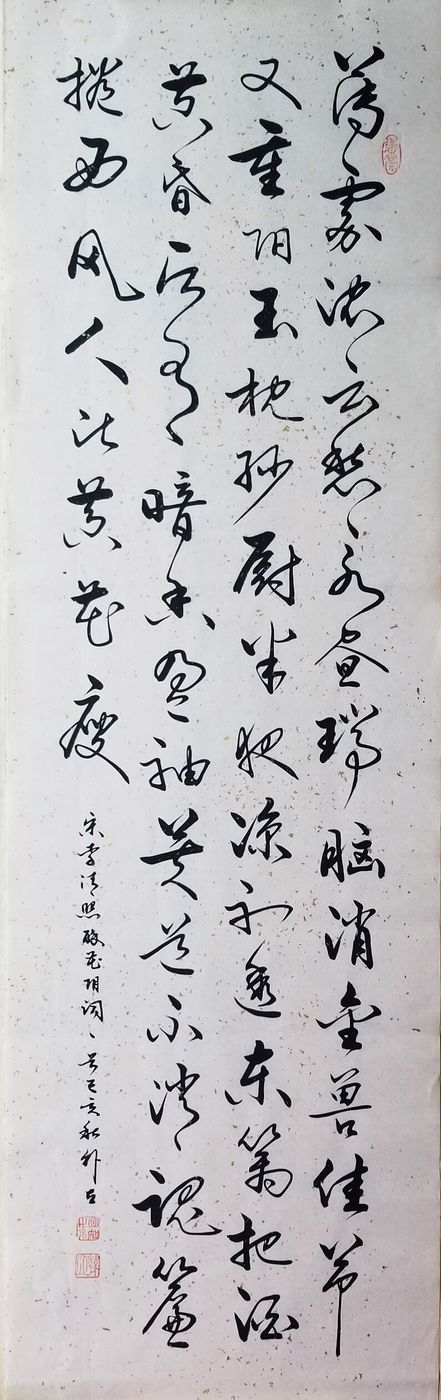 薄雾浓云愁永昼瑞脑消金兽佳节
又重阳玉枕纱厨半夜凉初透东篱把酒
黄昏后有暗香盈袖莫道不消魂簾
捲西风人比黄花瘦
宋李清照醉花阴词 己亥秋